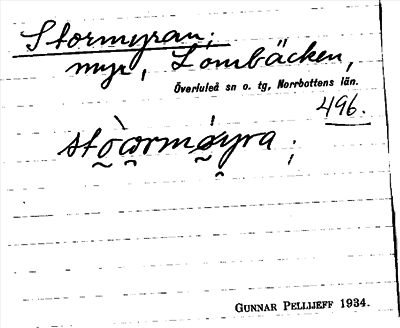 Stormyran;
myr, Lombäcken,
Överluleå sn o. tg, Norrbottens län.
496.
GUNNAR PELLIJEFF 1934.